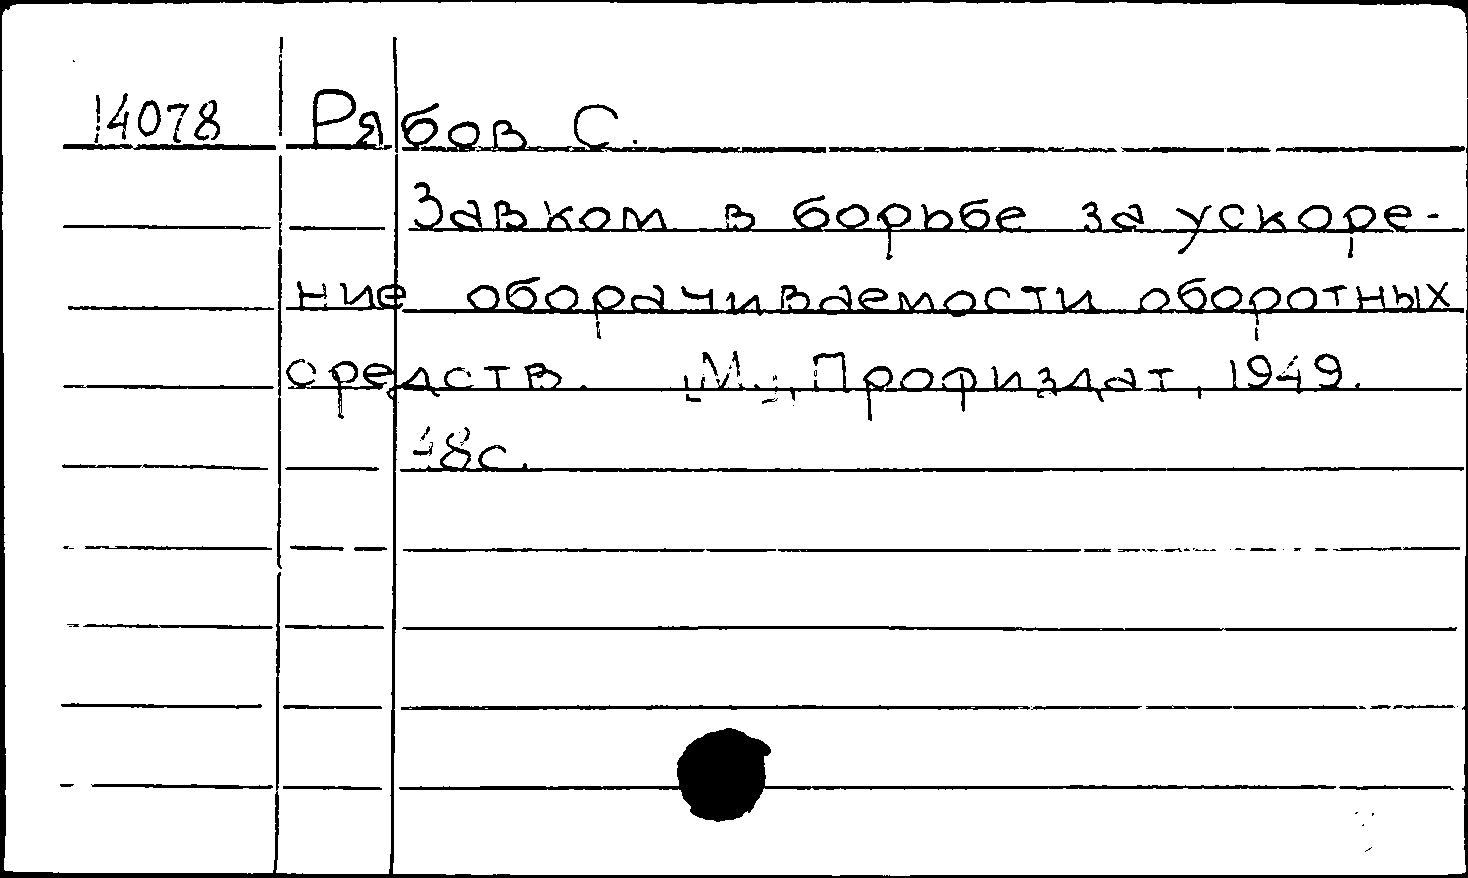 14078 Рябов С.
Завком в борьбе за ускоре-
ние оборачиваемости оборотных
средств. [М.], Профиздат, 1949.
48с.